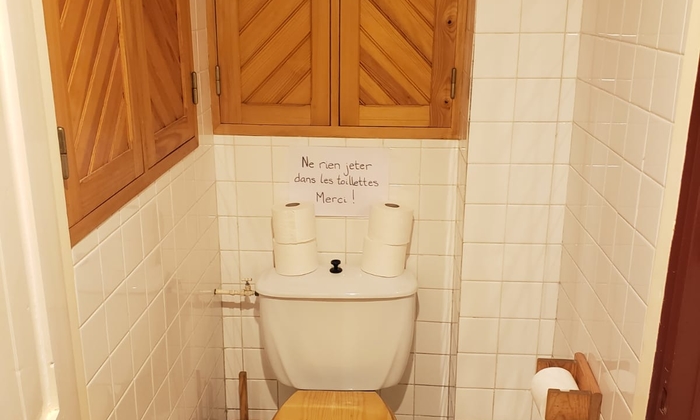 Ne rien jeter
dans les toillettes
Merci !